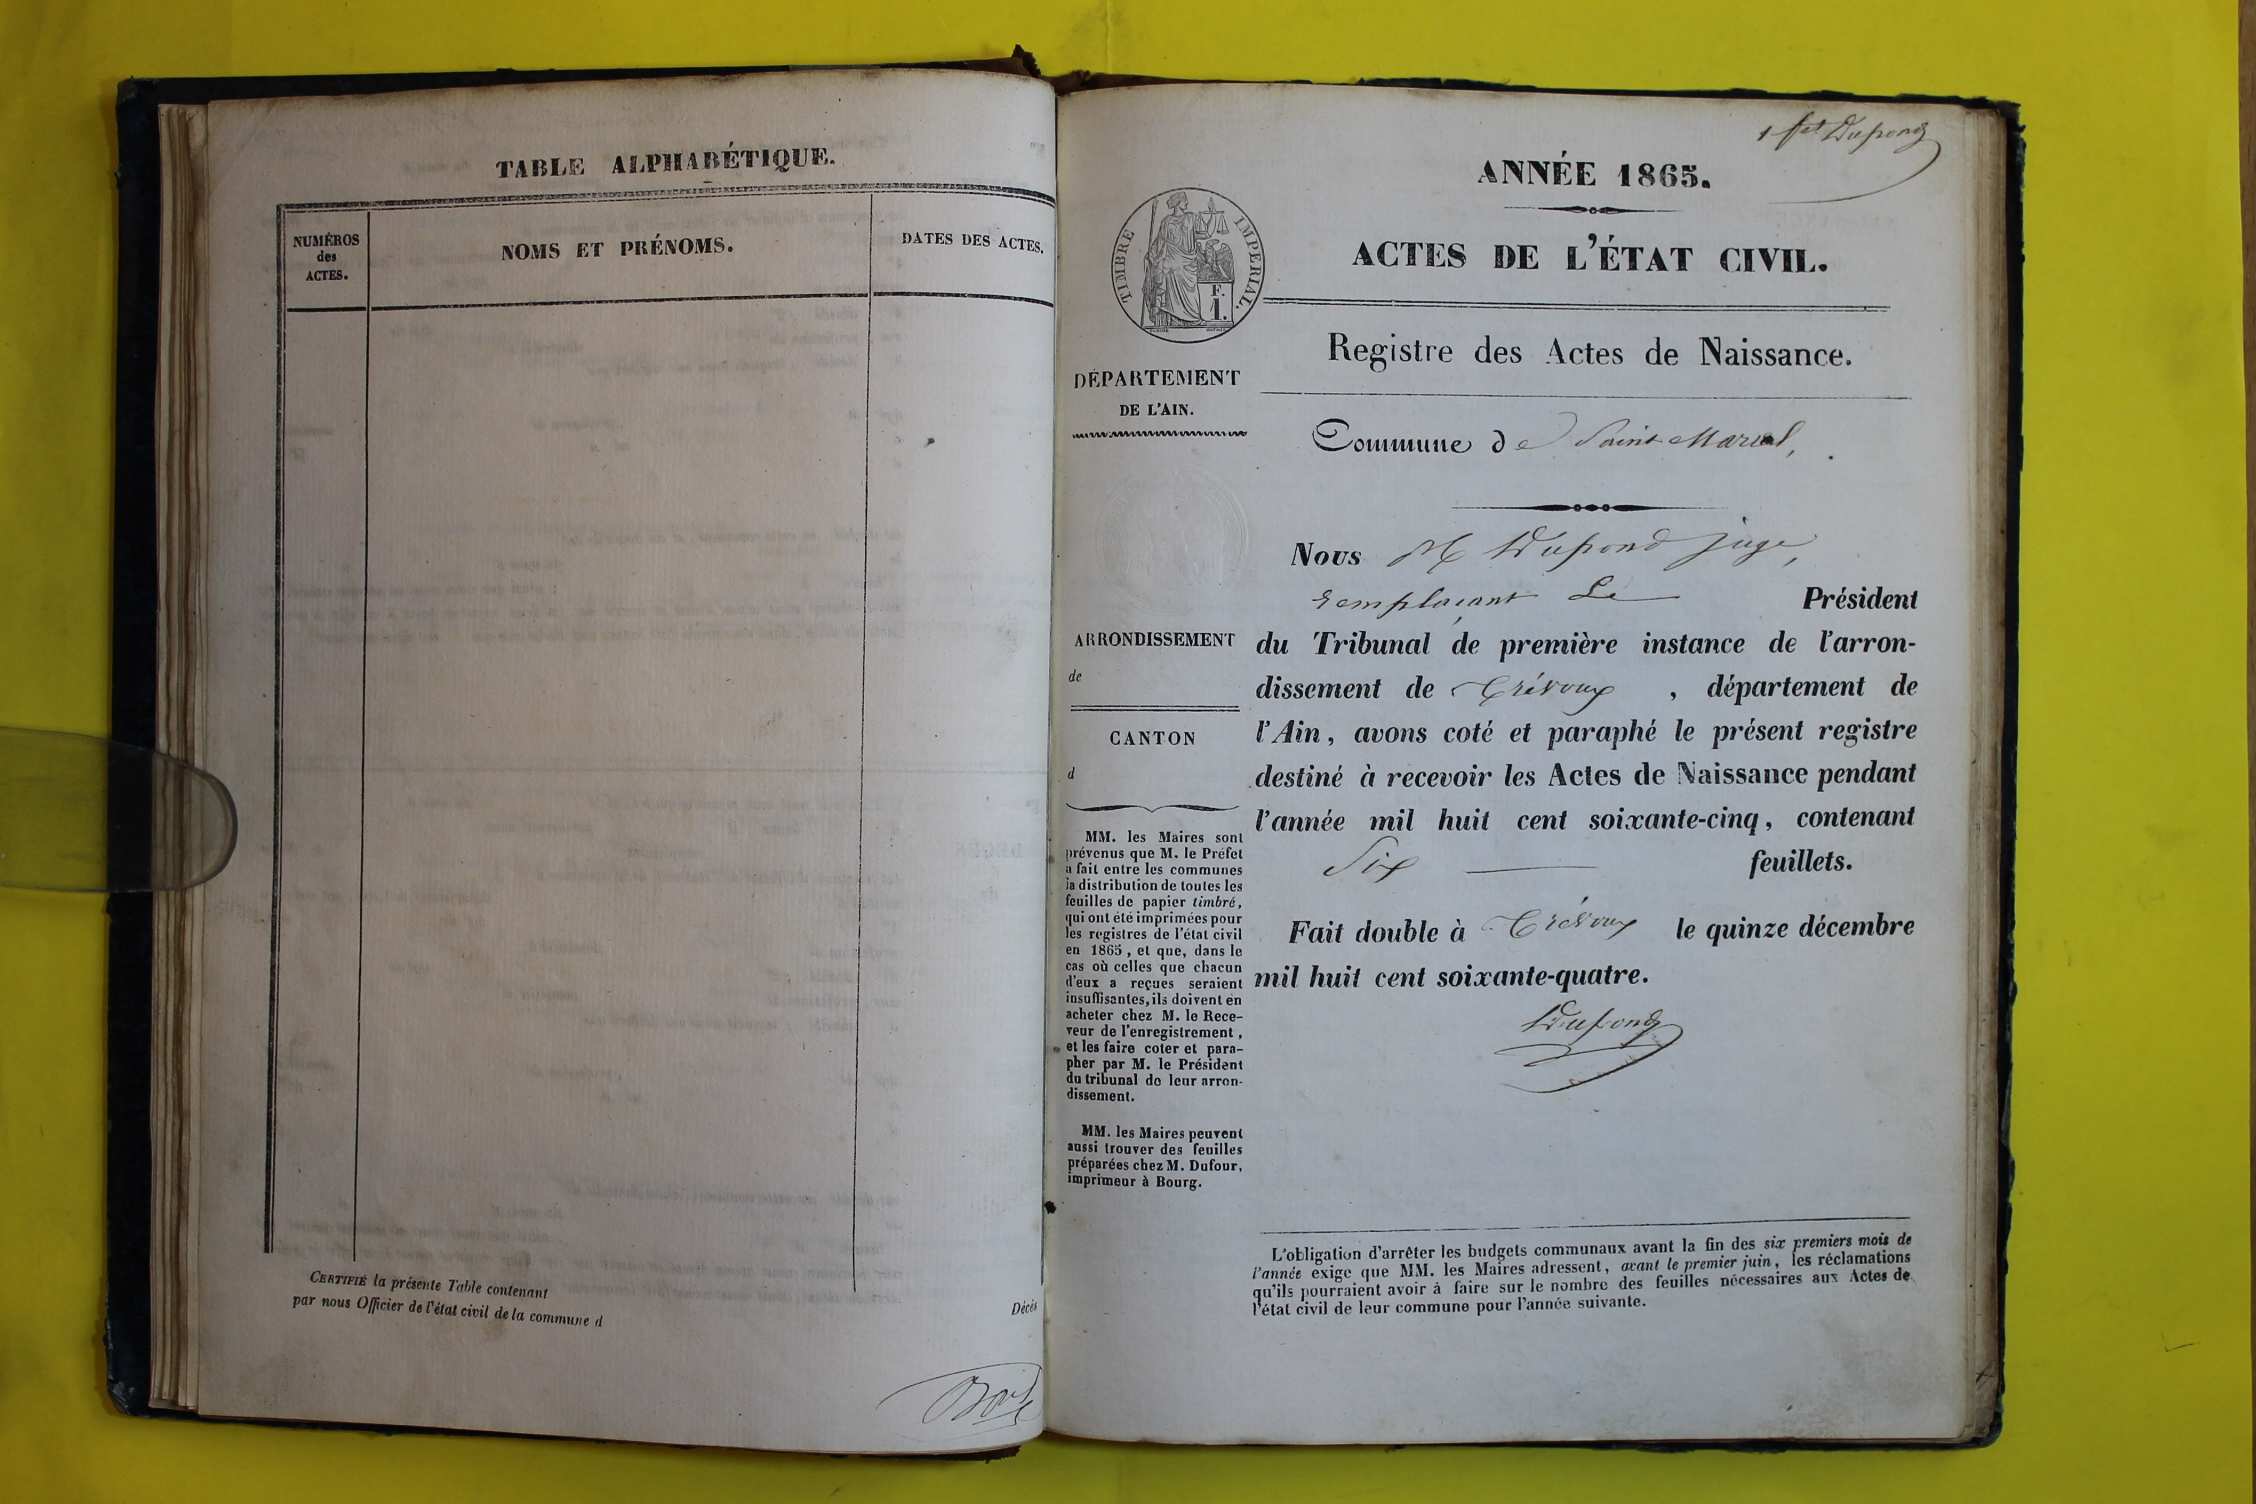 TABLE ALPHABÉTIQUE.
NUMÉROS
des
ACTES.
NOMS ET PRÉNOMS.
DATES DES ACTES.
CERTIFIÉ la présente Table contenant
par nous Officier de l'état civil de la commune d
Décès
1 fet Dupond
ANNÉE 1865.
ACTES DE L'ÉTAT CIVIL.
TIMBRE IMPERIAL.
F.
1.
Registre des Actes de Naissance.
DÉPARTEMENT
DE L'AIN.
Commune de Saint Marcel,
Nous M Dupond juge,
remplaçant Le Président
ARRONDISSEMENT
de
CANTON
d
du Tribunal de première instance de l'arron-
dissement de Trévoux , département de
l'Ain, avons coté et paraphé le présent registre
destiné à recevoir les Actes de Naissance pendant
l'année mil huit cent soixante-cinq, contenant
Six feuillets.
Fait double à Trévoux le quinze décembre
mil huit cent soixante-quatre.
Dupond
MM. les Maires sont
prévenus que M. le Préfet
a fait entre les communes
la distribution de toutes les
feuilles de papier timbré,
qui ont été imprimées pour
les registres de l'état civil
en 1865, et que, dans le
cas où celles que chacun
d'eux a reçues seraient
insuffisantes, ils doivent en
acheter chez M. le Rece-
veur de l'enregistrement,
et les faire coter et para-
pher par M. le Président
du tribunal de leur arron-
dissement.
MM. les Maires peuvent
aussi trouver des feuilles
préparées chez M. Dufour,
imprimeur à Bourg.
L'obligation d'arrêter les budgets communaux avant la fin des six premiers mois de
l'année exige que MM. les Maires adressent, avant le premier juin, les réclamations
qu'ils pourraient avoir à faire sur le nombre des feuilles nécessaires aux Actes de
l'état civil de leur commune pour l'année suivante.